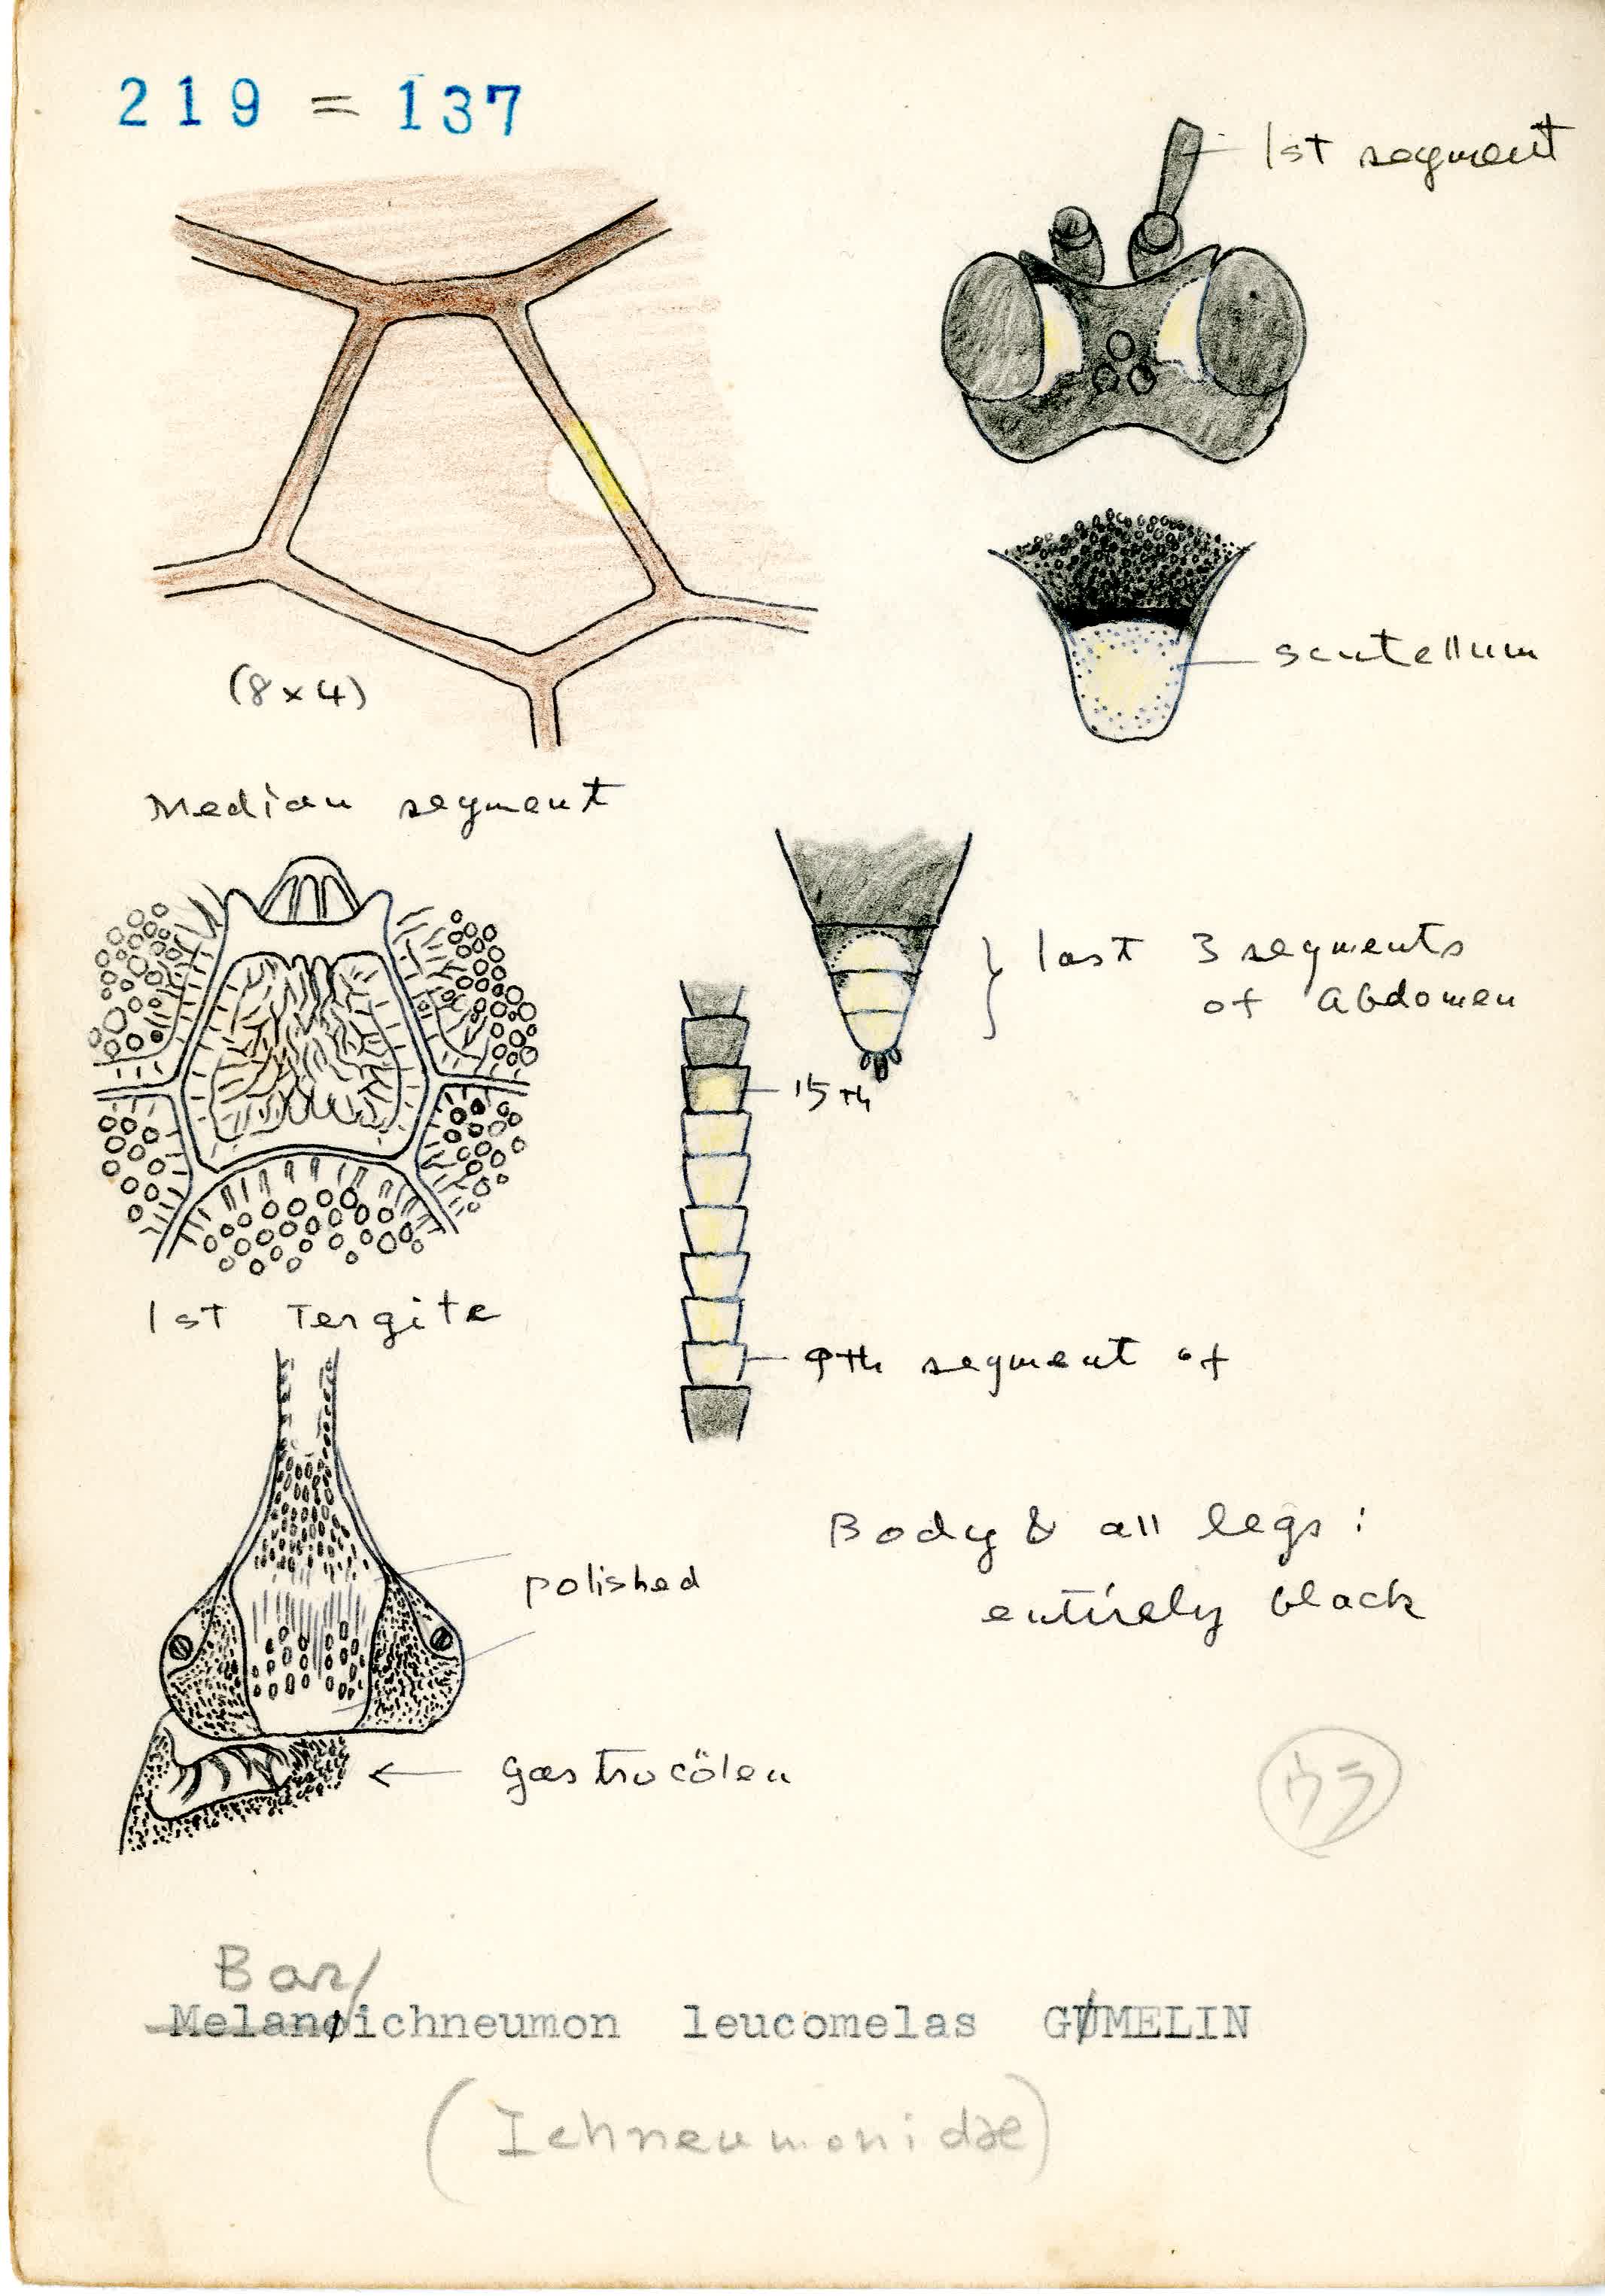 219 = 137
1st segment
scutellum
(8×4)
Median segment
last 3 segments
of Abdomen
15th
1st Tergite
9th segment of
polished
Body & all legs:
entirely black
Gastrocölen
ウラ
Bar/
Melanoichneumon leucomelas GUMELIN
(Ichneumonidae)